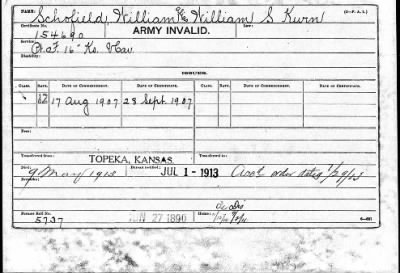 NAME: Schofield, William alias William S Kurn (3-F. A. I.)
Certificate No. ARMY INVALID. Law:
154690
Service:
16" Ks. Cav
Disability:
ISSUES.
CLASS. RATE. DATE OF COMMENCEMENT. DATE OF CERTIFICATE. CLASS. RATE. DATE OF COMMENCEMENT. DATE OF CERTIFICATE.
12 17 Aug 1907 28 Sept. 1907
Fees:
Transferred from: Transferred to:
TOPEKA, KANSAS.
Died: JUL 1 - 1913 order dated
9 May 1913
Former Roll No. Home:
5737 JUN 27 1890